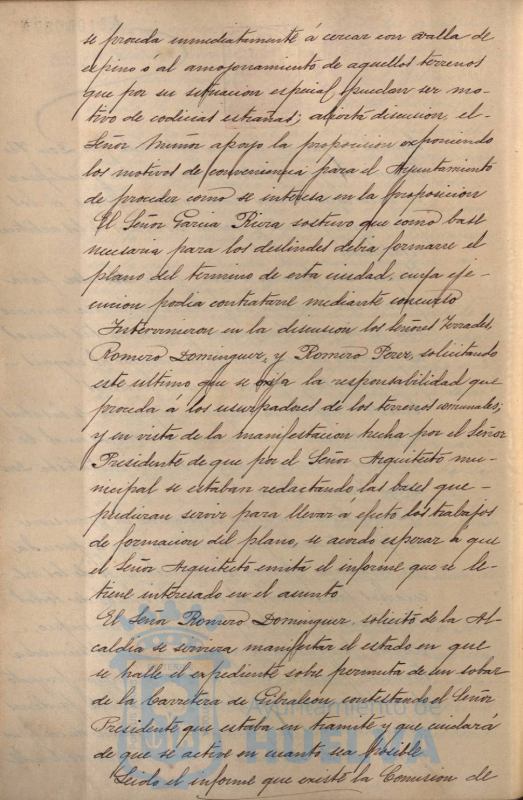 se proceda inmediatamente á cercar con valla de
espino ó al amojonamiento de aquellos terrenos
que por su situacion especial, puedan ser mo-
tivo de codicias estrañas; abierta discusion, el
Señor Muñoz apoyo la proposicion exponiendo
los motivos de conveniencia para el Ayuntamiento
de proceder como se interesa en la proposicion
El Señor Garcia Riera sostuvo que como base
necesaria para los deslindes debia formarse el
plano del termino de esta ciudad, cuya eje-
cucion podia contratarse mediante concurso
Intervinieron en la discusion los señores Terrades,
Romero Dominguez, y Romero Perez, solicitando
este ultimo que se exija la responsabilidad que
proceda á los usurpadores de los terrenos comunales;
y en vista de la manifestacion hecha por el Señor
Presidente de que por el Señor Arquitecto mu-
nicipal se estaban redactando las bases que
pudieran servir para llevar a efecto los trabajos
de formacion del plano, se acordó esperar a que
el Señor Arquitecto emita el informe que se le
tiene interesado en el asunto
El Señor Romero Dominguez, solicitó de la Al-
caldia se sirviera manifestar el estado en que
se halle el expediente sobre permuta de un solar
de la Carretera de Gibraleon contestando el Señor
Presidente que estaba en tramite y que cuidará
de que se active en cuanto sea posible
Leido el informe que existe la Comision de
Ayuntamiento de
HUELVA